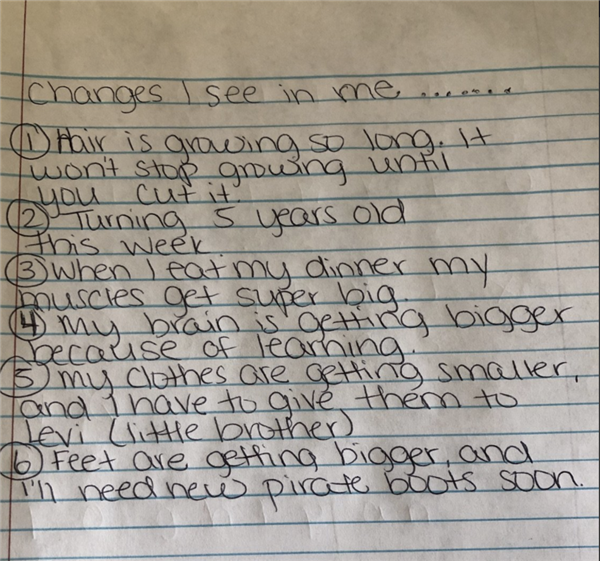 Changes I see in me .......
① Hair is growing so long. It
won't stop growing until
you cut it.
② Turning 5 years old
this week
③ When I eat my dinner my
muscles get super big.
④ my brain is getting bigger
because of learning.
⑤ my clothes are getting smaller,
and I have to give them to
Levi (little brother)
⑥ Feet are getting bigger, and
I'll need new pirate boots soon.